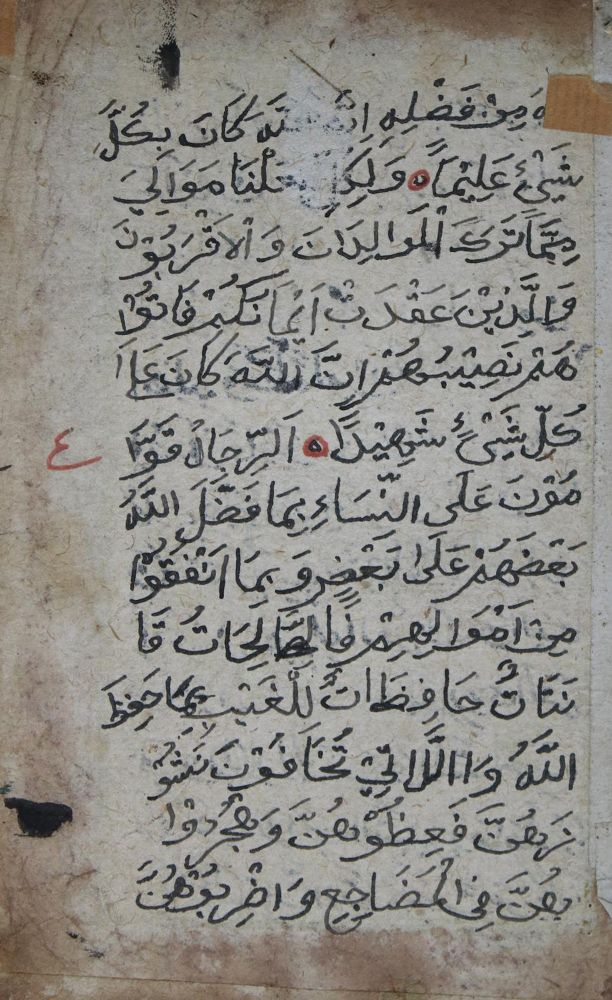 ه مِنْ فَضْلِهِ اِنَّ اللَّهَ كَانَ بِكُلِّ
شَيْئٍ عَلِيْمًا ه وَلِكُلٍّ جَعَلْنَا مَوَالِيَ
مِمَّا تَرَكَ الْوَالِدَانَ وَالْاَقْرَبُوْنَ
وَالَّذِيْنَ عَقْدَتْ اَيْمَانَكُمْ فَاتُوْا
هُمْ نَصِيْبُهُمْ اِنَّ اللَّهَ كَانَ عَلَا
كُلِّ شَيْئٍ شَهِيْدًا ه اَلرِّجَالُ قَوَّا
مُوْنَ عَلَى النِّسَاءِ بِمَا فَضَّلَ اللَّهُ
بَعْضَهُمْ عَلَىٰ بَعْضٍ وَبِمَا اَنْفَقُوْا
مِنْ اَمْوَالِهِمْ فَالصَّالِحَاتُ قَا
نَتَاتٌ حَافِظَاتٌ لِلْغَيْبِ بِمَا حَفِظَ
اللَّهُ وَااللَّاتِيْ تَخَافُوْنَ نُشُوْ
زَهُنَّ فَعِظُوْهُنَّ وَهْجُرُوْا
هُنَّ فِي الْمَضَاجِعِ وَاضْرِبُوْهُنَّ
ع